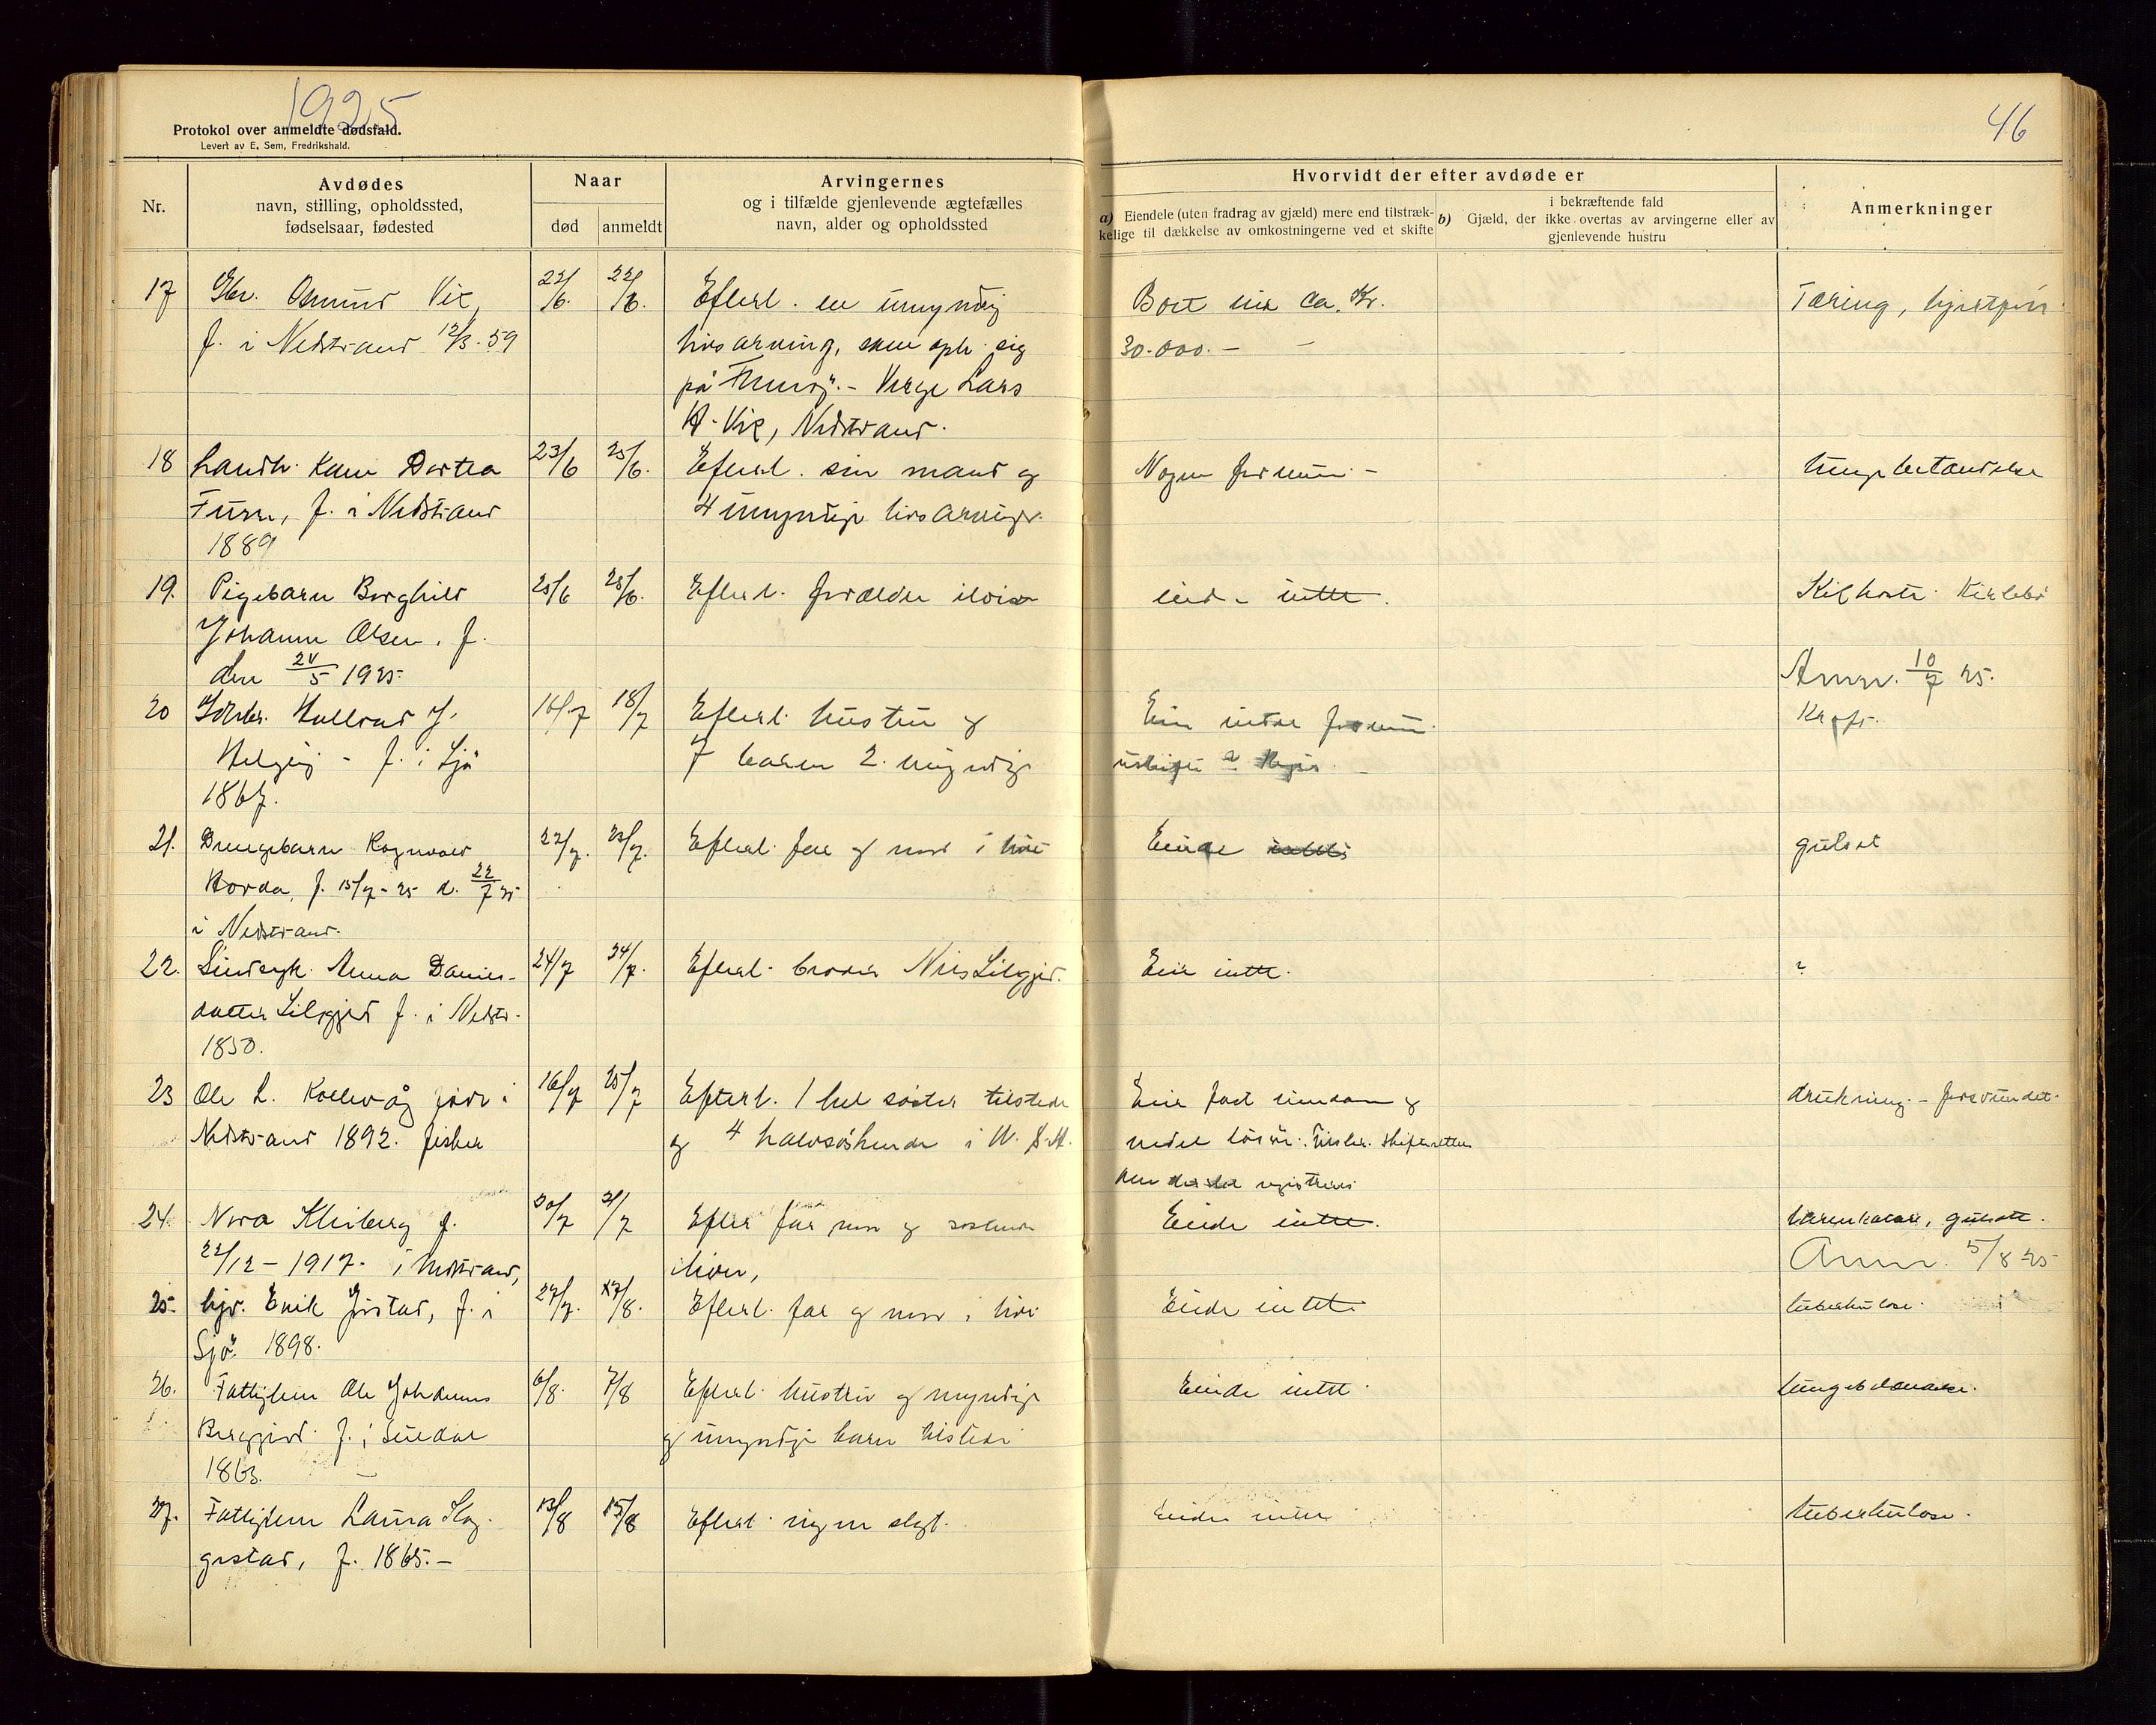 1925
Protokol over anmeldte dødsfald.
Levert av E. Sem, Fredrikshald.
46
Nr.
Avdødes
navn, stilling, opholdssted,
fødselsaar, fødested
Naar
død
anmeldt
Arvingernes
og i tilfælde gjenlevende ægtefælles
navn, alder og opholdssted
Hvorvidt der efter avdøde er
a) Eiendele (uten fradrag av gjæld) mere end tilstræk-
kelige til dækkelse av omkostningerne ved et skifte
i bekræftende fald
b) Gjæld, der ikke overtas av arvingerne eller av
gjenlevende hustru
Anmerkninger
17 Gbr. Osmund Vik, 22/6. 22/6. Efterl. en umyndig Boet eier ca. Kr. Tæring,
f. i Nedstrand 12/3.59 livsarving, som oph. sig 30.000.-
på - Verge Lars
H. Vik, Nedstrand.
18 Landh. Kone Dortea 23/6 25/6. Efterl. sin mand og Nogen formue.- lungebetændelse
f. i Nedstrand 4 umyndige livsarvinger.
1889
19. Pigebarn Borghild 25/6 28/6. Efterl. forældre ilive eied- intet. Kikhoste.
Johanne Olsen, f.
den 24/5 1925. Anm. 10/7 25.
20 Hallvard J. 16/7 18/7 Efterl. hustru og Eier midre formue. Kræft.
Helgeig - f. i Sjø 7 barn 2 umyndige
1867.
21. Drengebarn Ragnvald 22/7. 23/7. Efterl. far og mor i live Eiede intet gulsot
Horda, f. 15/7-25 d. 22/7 25
i Nedstrand.
22. Anna Daniels- 24/7 24/7. Efterl. broder Nils Lilgjed. Eier intet. ?
datter Lilgjed f. i Nedstr.
1850.
23 Ole L. Kallevåg født i 16/7 25/7 Efterl. 1 hel søster tilstede Eier fast eiendom og drukning - forsvundet.
Nedstrand 1892. fisker og 4 halvsøskende i U.S.A. skifteretten
registreres
24. Nora Kleiberg f. 30/7 31/7 Efterl far mor og søskende Eiede intet. gulsott.
22/12-1917. i Nedstrand, ilive, Anm. 5/8 25
25. Enik f. i 27/7. 17/8. Efterl. far og mor i live Eiede intet. tuberkulose.
Sjø. 1898.
26. Fattiglem Ole Johannes 6/8. 7/8 Efterl. hustru og myndige Eiede intet. lungebetændelse.
Berggjerd. f. i Suldal og umyndige barn tilstede
1863.
27. Fattiglem Laura 13/8 15/8 Efterl. ingen slegt. Eiede intet tuberkulose.
f. 1865.-